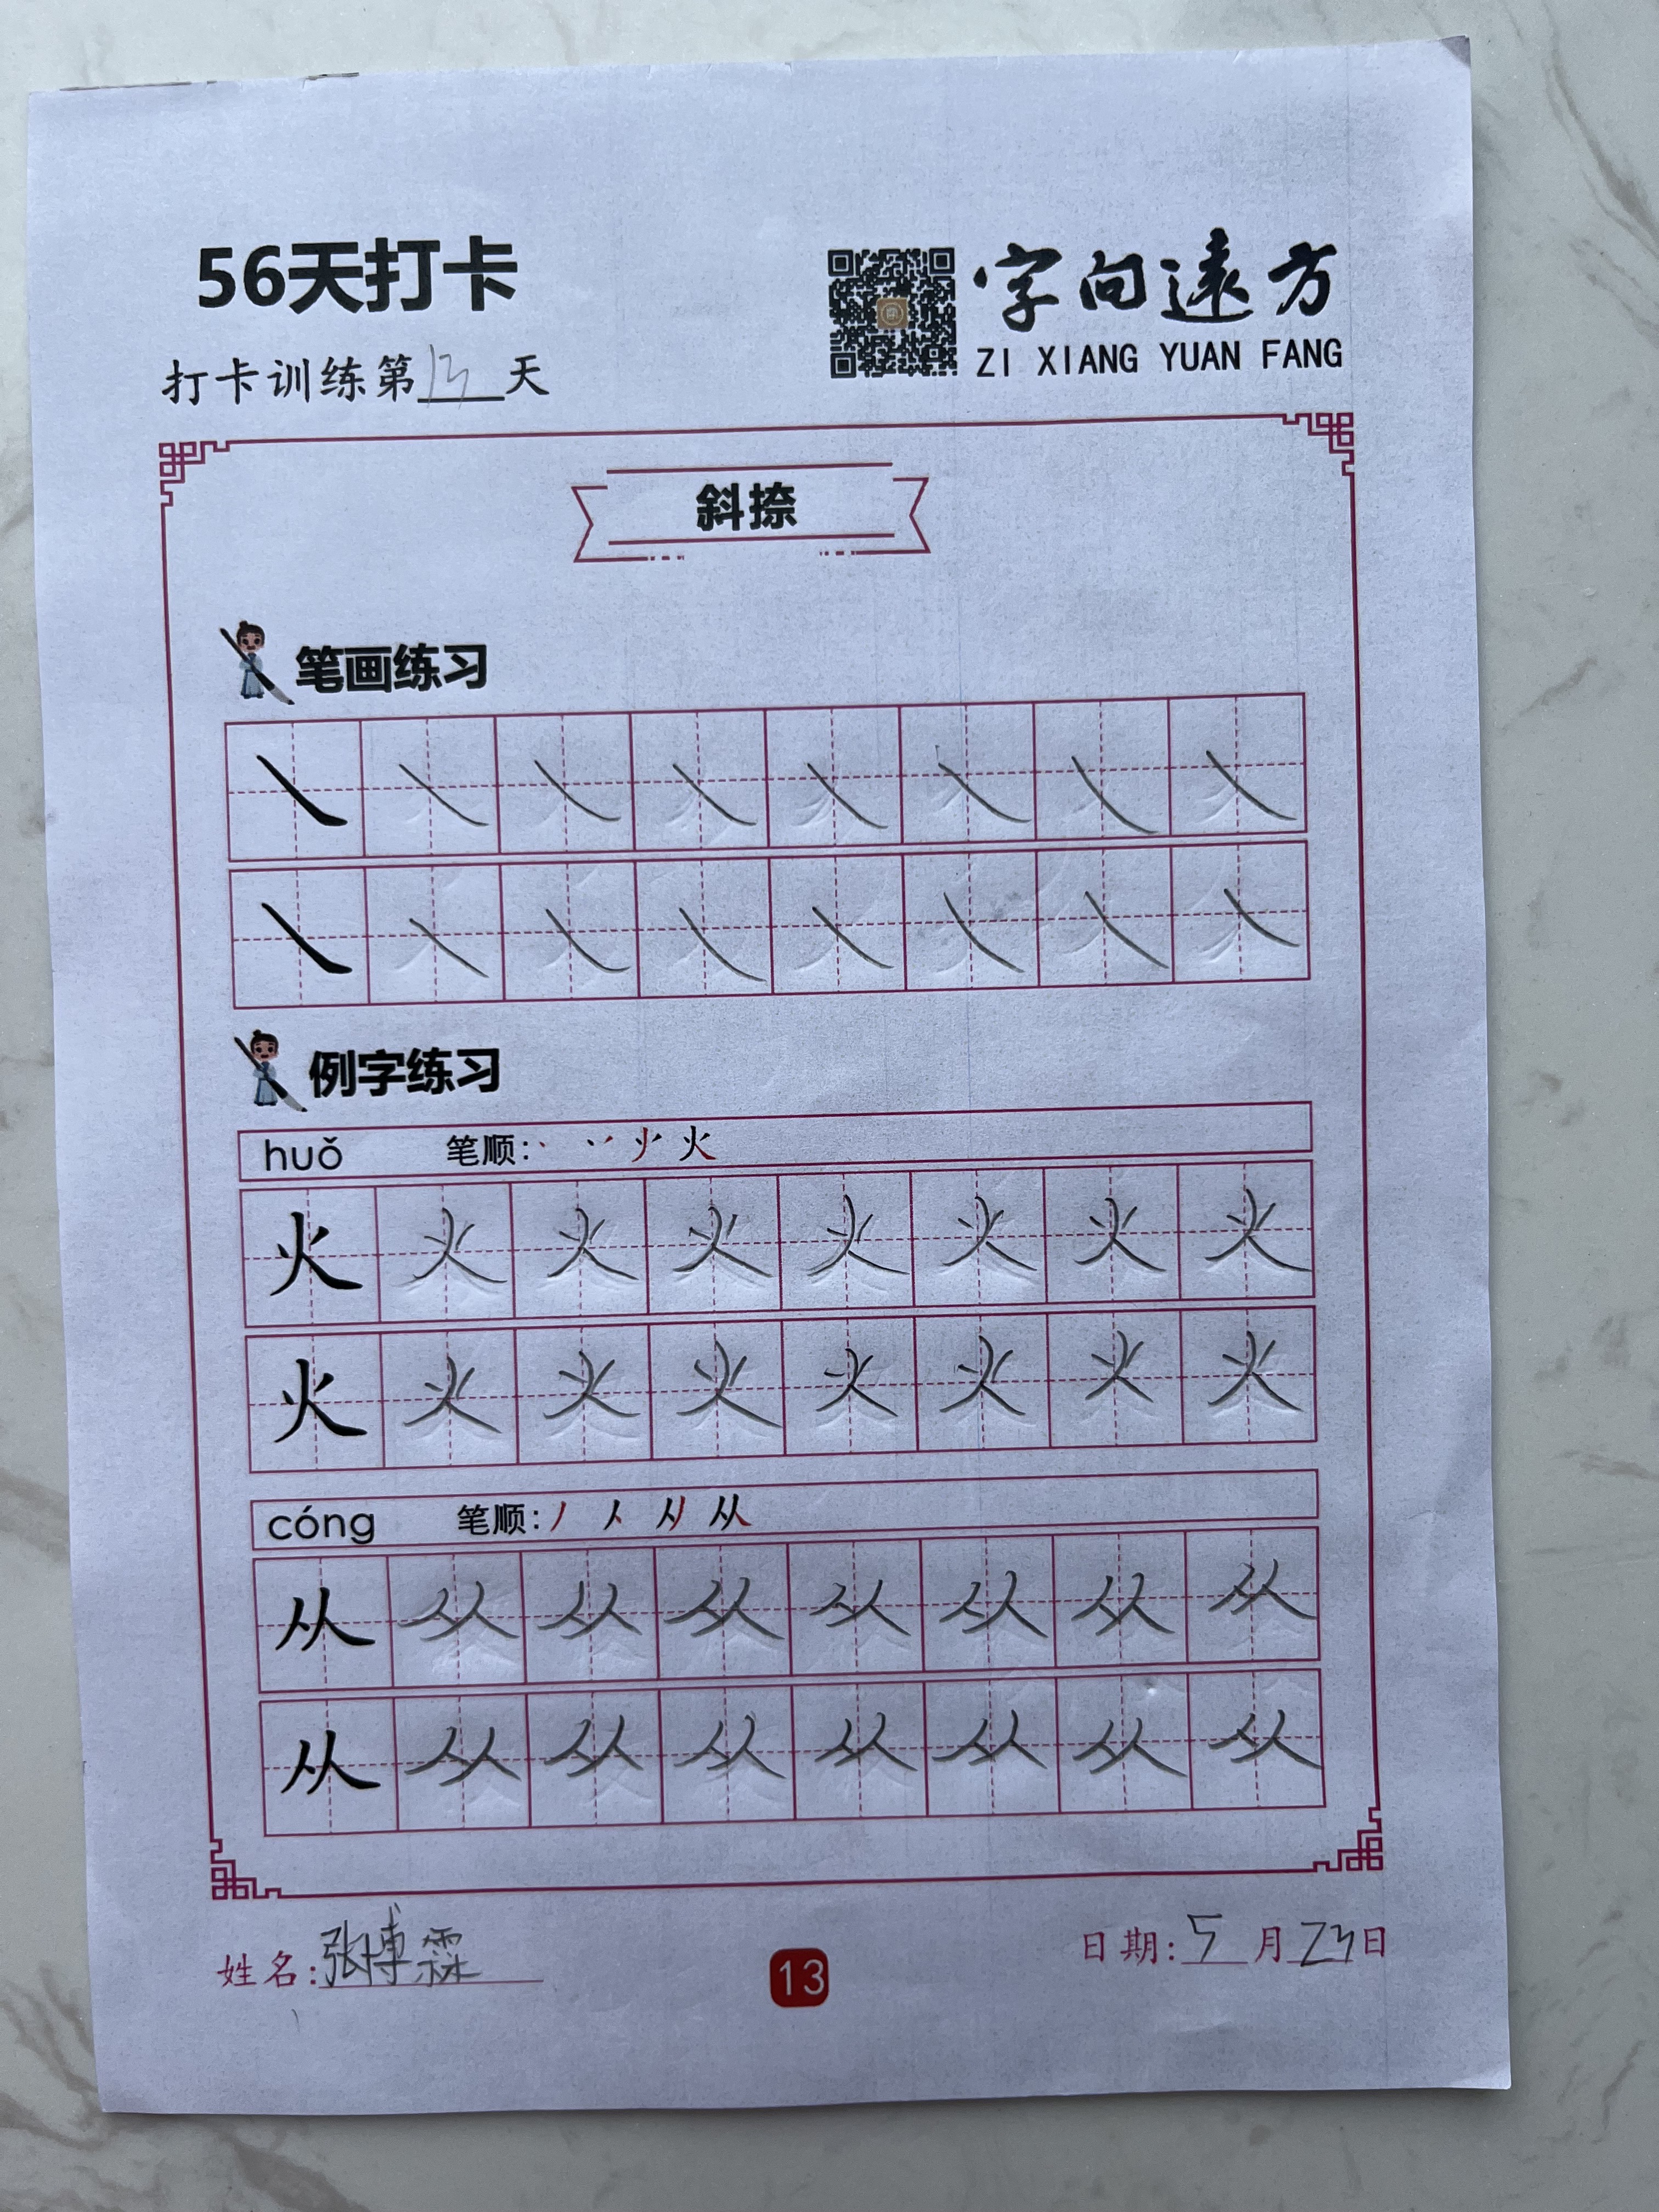 56天打卡
字向遠方
ZI XIANG YUAN FANG
打卡训练第13天
斜捺
笔画练习
㇏ ㇏ ㇏ ㇏ ㇏ ㇏ ㇏ ㇏
㇏ ㇏ ㇏ ㇏ ㇏ ㇏ ㇏ ㇏
例字练习
huǒ 笔顺: 丶 丷 火 火
火 火 火 火 火 火 火 火
火 火 火 火 火 火 火 火
cóng 笔顺: 丿 人 从 从
从 从 从 从 从 从 从 从
从 从 从 从 从 从 从 从
姓名:张博霖
13
日期:5月23日